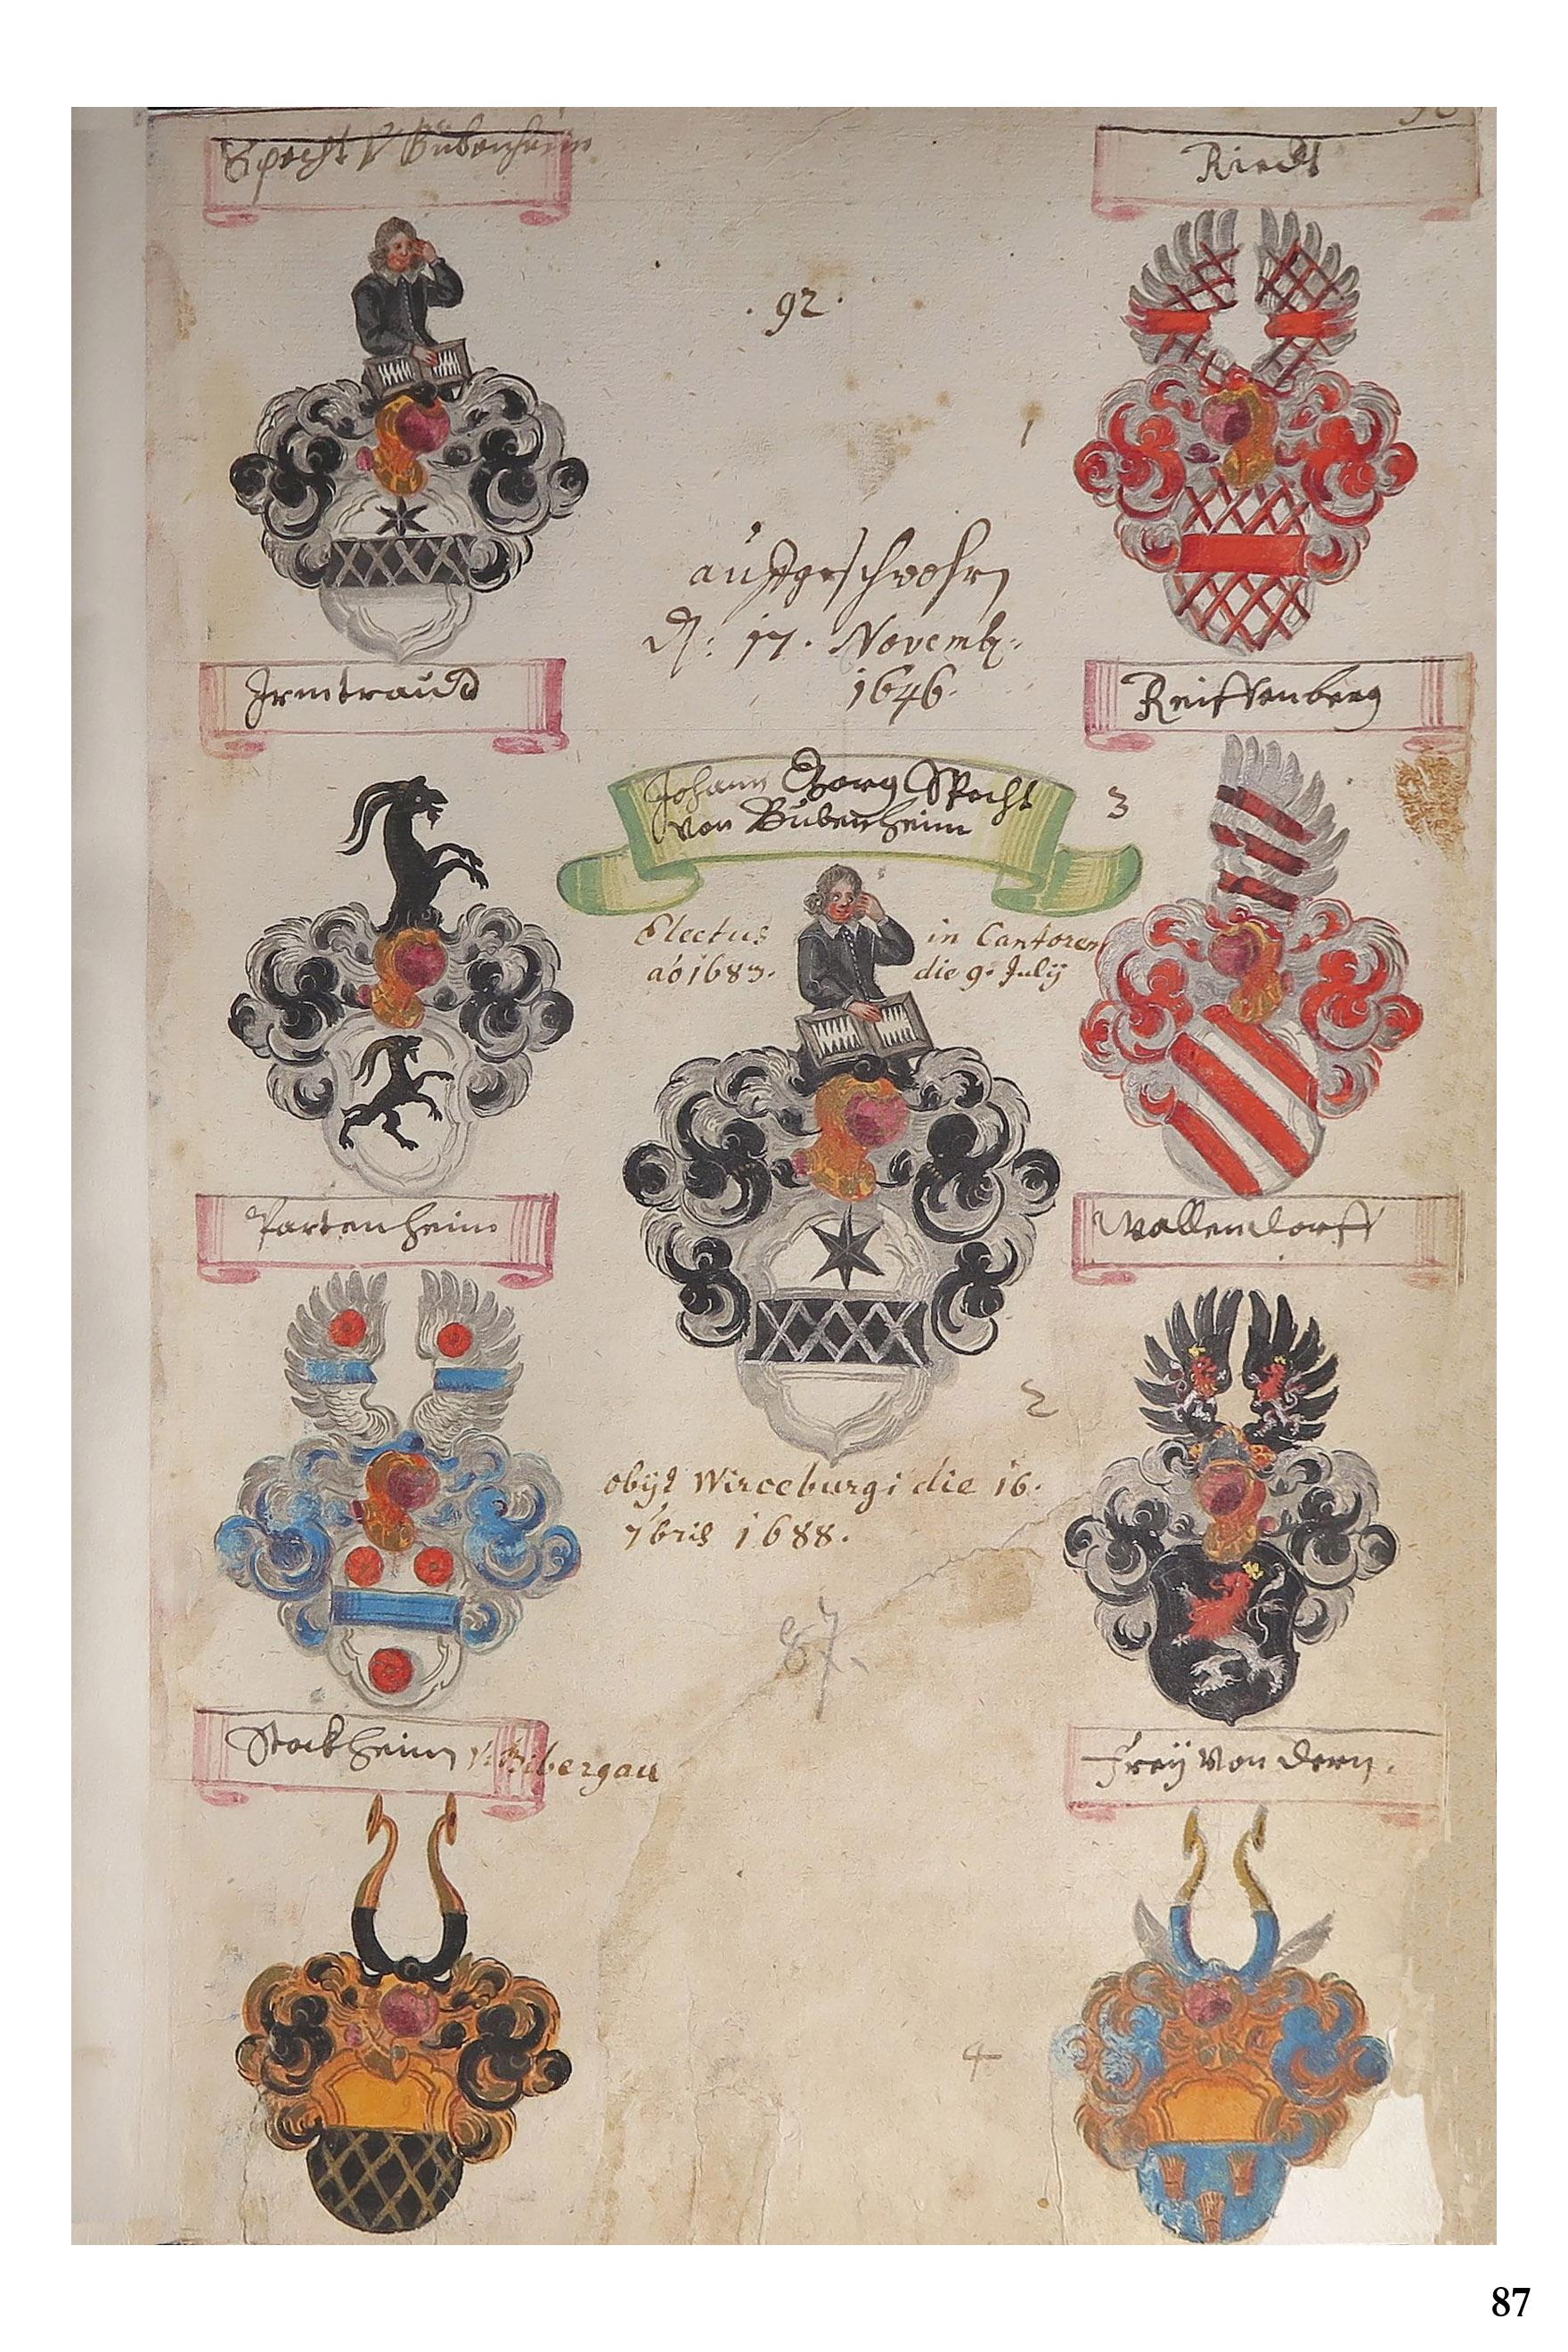 Specht V Bübenheim
Riedt
92.
1
aufgeschwohrn
D: 17. Novemb:
1646.
Irmtraudt
Reiffenberg
Johann Georg Specht
von Bübenheim
3
Electus in Cantorem
ao 1683. die 9. July
Partenheim
Wallendorff
2
obyt Wirceburgi die 16.
7bris 1688.
87.
Stockheim v: Bibergau
Frey von Dern.
4
87